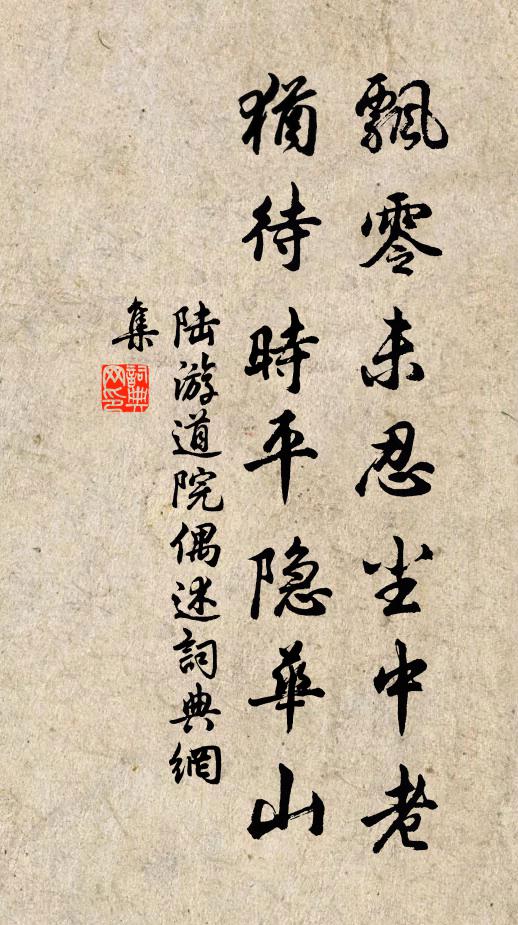 飄零未忍尘中老
猶待時平隐華山
陆游道院偶述詞典網
集
詞典
网印